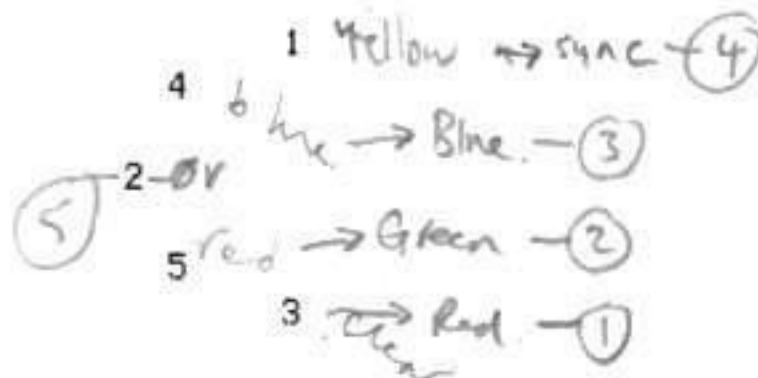 1 Yellow → sync - 4
4 blue → Blue. - 3
5 - 2 - 0v
5 red → Green - 2
3 clear → Red - 1